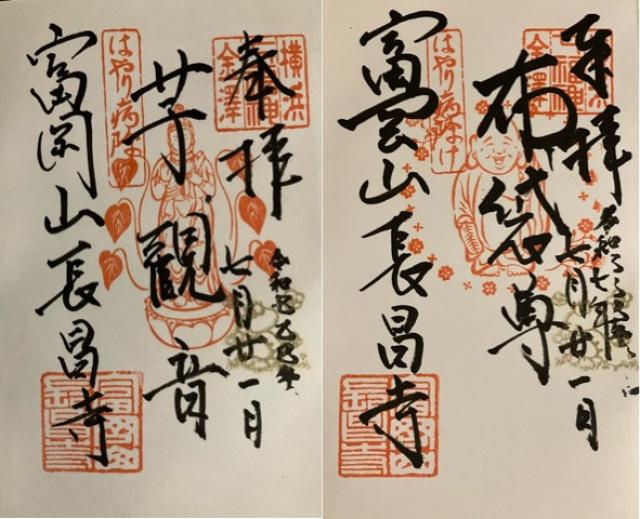 横浜
金澤
奉拝
七月廿一日
芋観音
はやり病除け
富岡山長昌寺
七福神
金澤
奉拝
七月廿一日
布袋尊
はやり病除け
富岡山長昌寺